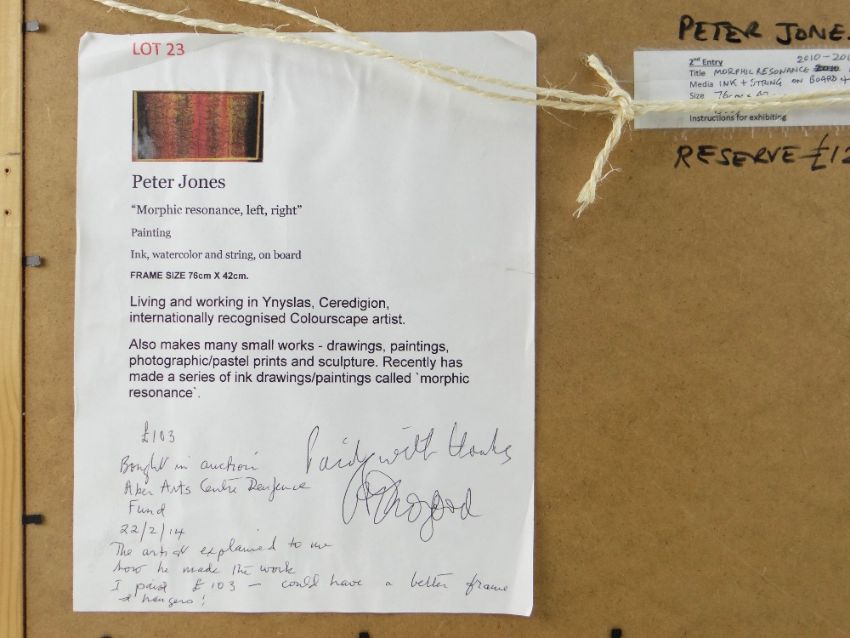 LOT 23
Peter Jones
“Morphic resonance, left, right”
Painting
Ink, watercolor and string, on board
FRAME SIZE 76cm X 42cm.
Living and working in Ynyslas, Ceredigion,
internationally recognised Colourscape artist.
Also makes many small works - drawings, paintings,
photographic/pastel prints and sculpture. Recently has
made a series of ink drawings/paintings called `morphic
resonance`.
£103
Bought in auction
Aber Arts Centre Defence
Fund
22/2/14
The artist explained to me
how he made the work
I paid £103 — could have a better frame
& hangers!
Paid with thanks
PETER JONE
2nd Entry 2010-201
Title MORPHIC RESONANCE 2010
Media INK + STRING ON BOARD +
Size 76cm x
Instructions for exhibiting
RESERVE £12